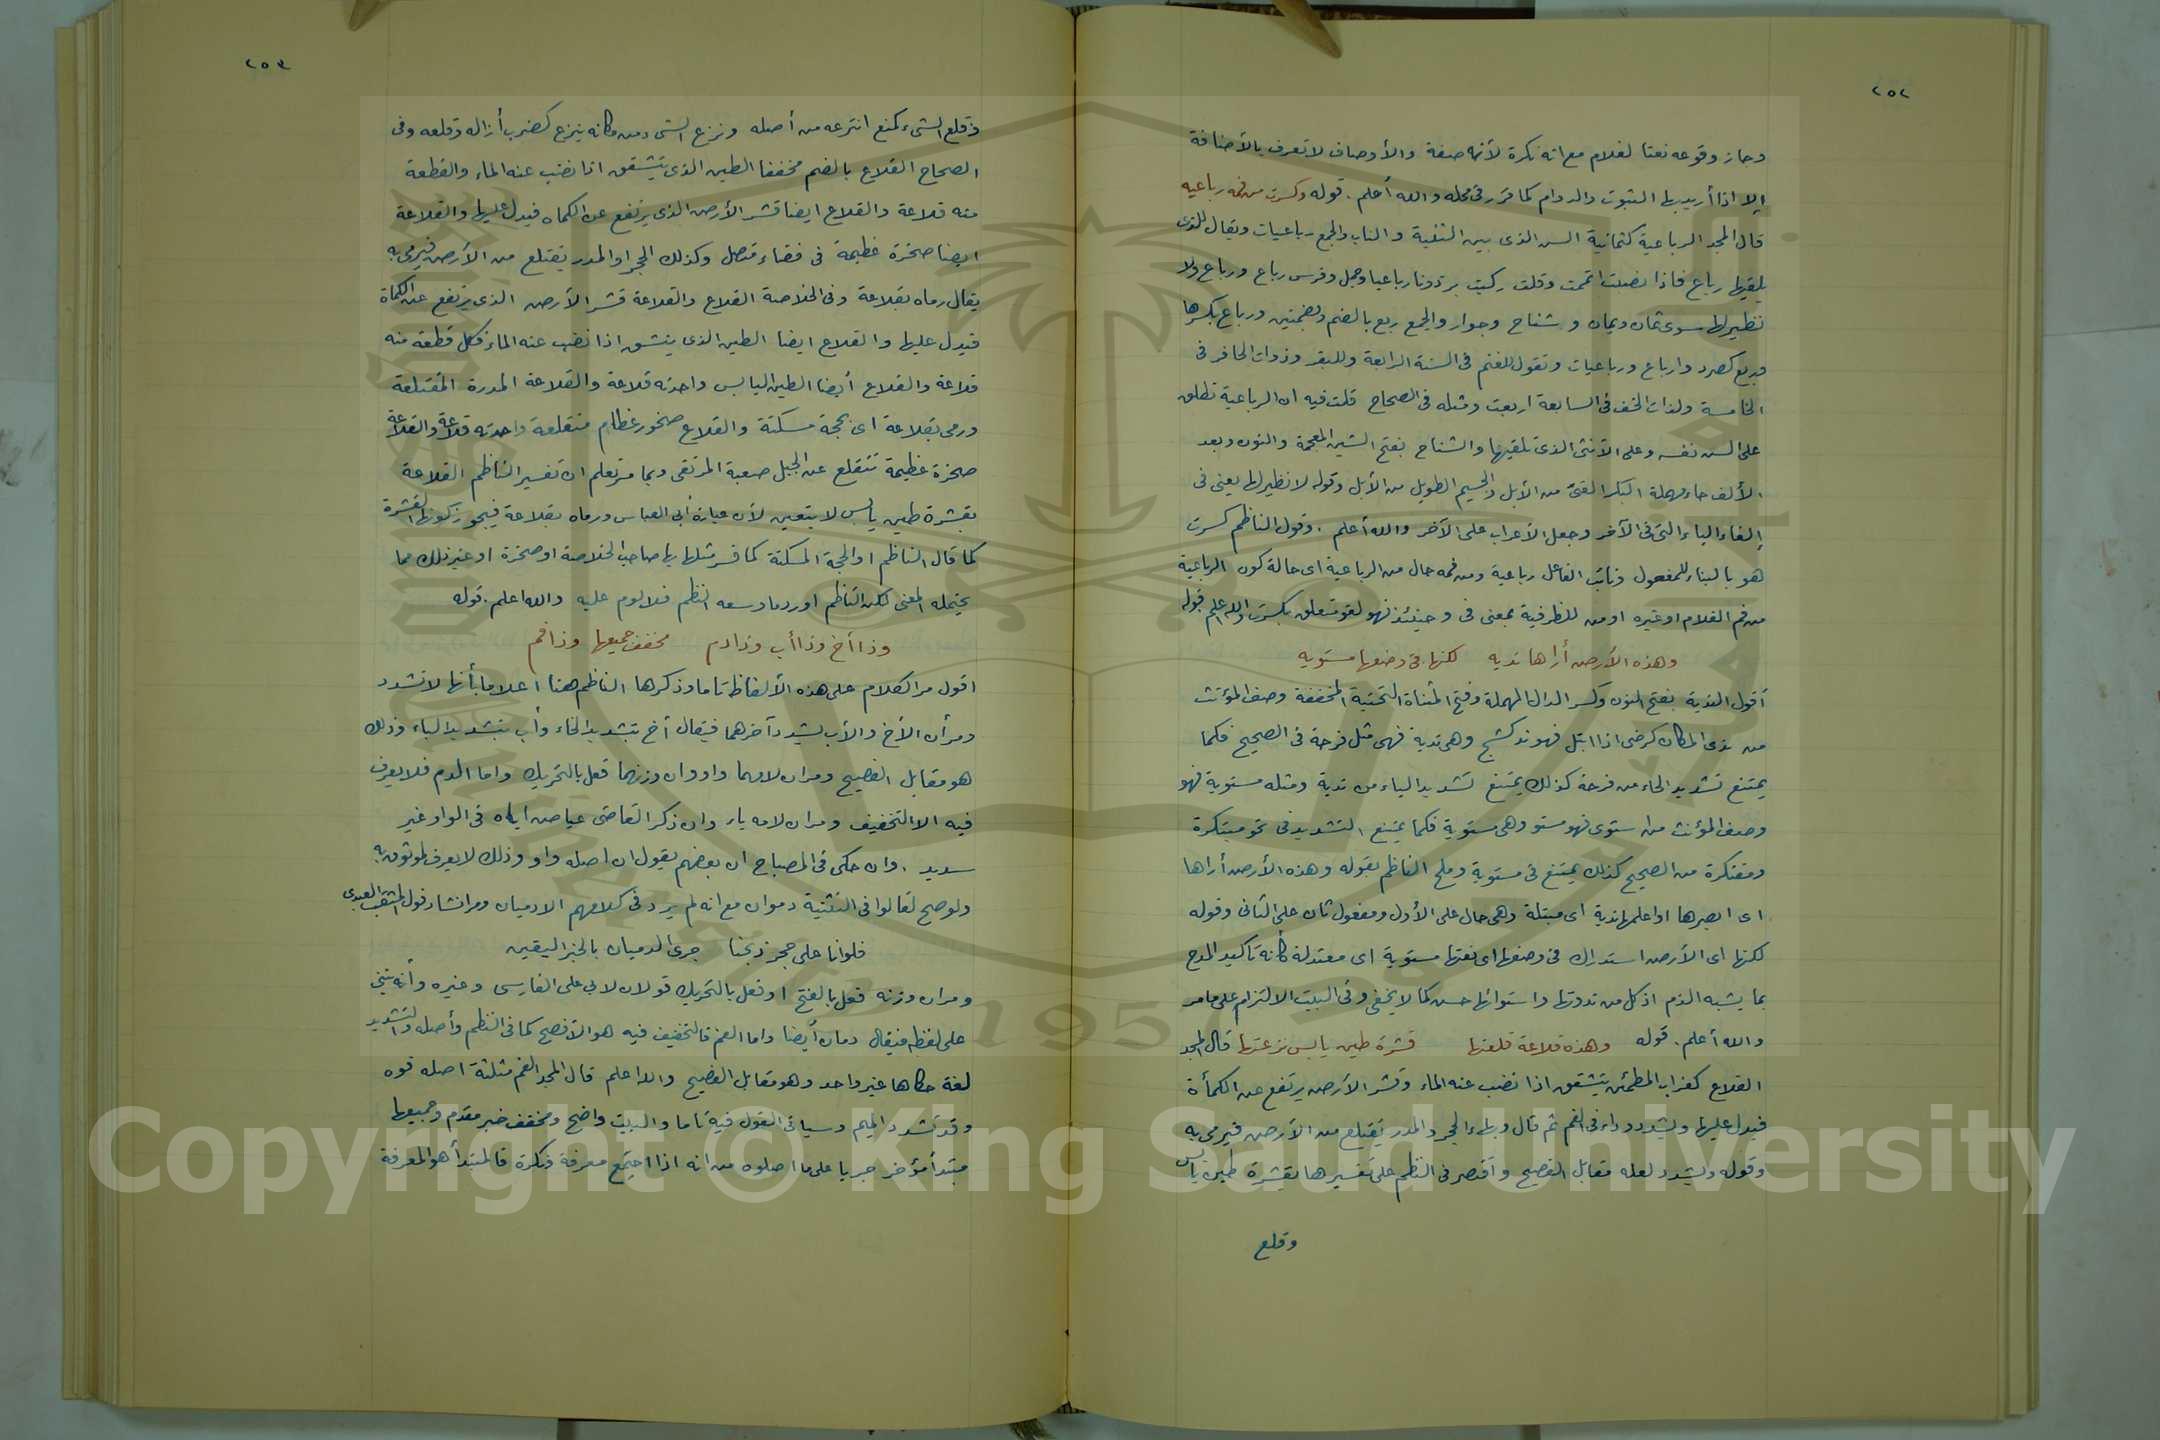 ٢٥٢
وجاز وقوعه نعتا لغلام مع انه نكرة لأنه صفة والأوصاف لا تعرف بالأضافة
إلا اذا أريد بها الثبوت والدوام كما قرر فى محله والله أعلم . قوله وكسرت من فمه رباعيه
قال المجد الرباعية كثمانية السن الذى بين الثنية والناب والجمع رباعيات ويقال للذى
يلقيها رباع فاذا نصبت اتممت وقلت ركبت برذونا رباعيا وجمل وفرس رباع ورباع ولا
نظير لها سوى ثمان ويمان وشناح وجوار والجمع ربع بالضم وبضمتين ورباع بكسرها
وربع كصرد وارباع ورباعيات وتقول للغنم فى السنة الرابعة وللبقر وذوات الحافر فى
الخامسة ولذات الخف فى السابعة اربعت ومثله فى الصحاح قلت فيه ان الرباعية تطلق
على السن نفسه وعلى الأنثى الذى تلقيها والشناح بفتح الشين المعجمة والنون وبعد
الألف حاء مهملة البكر الفتى من الأبل والجسيم الطويل من الأبل وقوله لا نظير لها يعنى فى
إلغاء الياء التى فى الآخر وجعل الأعراب على الآخر والله أعلم . وقول الناظم كسرت
هو بالبناء للمفعول ونائب الفاعل رباعية ومن فمه حال من الرباعية اى حالة كون الرباعية
من فم الغلام او غيره او من للظرفية بمعنى فى وحينئذ فهو لغو متعلق بكسرت والله اعلم قوله
وهذه الأرض أراها نديه لكنها فى وصفها مستويه
أقول الندية بفتح النون وكسر الدال المهملة وفتح المثناة التحتية المخففة وصف المؤنث
من ندى المكان كرضى اذا ابتل فهو ند كشج وهى ندية فهى مثل فرحة فى الصحيح فكما
يمتنع تشديد الحاء من فرحة كذلك يمتنع تشديد الياء من ندية ومثله مستوية فهو
وصف المؤنث من استوى فهو مستو وهى مستوية فكما يمتنع التشديد فى نحو مبتكرة
ومفتكرة من الصحيح كذلك يمتنع فى مستوية وملح الناظم بقوله وهذه الأرض أراها
اى ابصرها او اعلمها ندية اى مبتلة وهى حال على الأول ومفعول ثان على الثانى وقوله
لكنها اى الأرض استدراك فى وصفها اى نعتها مستوية اى معتدلة كأنه تاكيد المدح
بما يشبه الذم اذ كل من ندوتها واستوائها حسن كما لا يخفى وفى البيت الالتزام على ما مر
والله أعلم . قوله وهذه قلاعة قلعتها قشرة طين يابس نزعتها قال المجد
القلاع كغراب المطمئن يتشقق اذا نضب عنه الماء وقشر الأرض يرتفع عن الكمأة
فيدل عليها ويشدد وداء فى الفم ثم قال وبهاء الحجر والمدر يقتلع من الأرض فيرمى به
وقوله ويشدد لعله مقابل الفصيح واقتصر فى النظم على تفسيرها بقشرة طين يابس
وقلع
٢٥٣
وقلع الشىء كمنع انترعه من أصله ونزع الشىء من مكانه ينزع كضرب أزاله وقلعه وفى
الصحاح القلاع بالضم مخففا الطين الذى يتشقق اذا نضب عنه الماء والقطعة
منه قلاعة والقلاع ايضا قشر الأرض الذى يرتفع عن الكماه فيدل عليها والقلاعة
ايضا صخرة عظيمة فى فضاء متصل وكذلك الحجر او المدر يقتلع من الأرض فيرمى به
يقال رماه بقلاعة وفى الخلاصة القلاع والقلاعة قشر الأرض الذى يرتفع عن الكمأة
فيدل عليها والقلاع ايضا الطين الذى ينشق اذا نضب عنه الماء فكل قطعة منه
قلاعة والقلاع أيضا الطين اليابس واحدته قلاعة والقلاعة المدرة المقتلعة
ورمى بقلاعة اى بحجة مسكتة والقلاع صخور عظام متقلعة واحدته قلاعة والقلاعة
صخرة عظيمة تنقلع عن الجبل صعبة المرتقى وبما مر تعلم ان تفسير الناظم القلاعة
بقشرة طين يابس لا يتعين لأن عبارة أبى العباس ورماه بقلاعة فيجوز كونها القشرة
كما قال الناظم او الحجة المسكتة كما فسر مثلها بها صاحب الخلاصة او صخرة او غير ذلك مما
يحتمله المعنى لكن الناظم اورد ما وسعه النظم فلا لوم عليه والله اعلم . قوله
وذا أخ وذا أب وذا دم مخفف جميعها وذا فم
اقول مر الكلام على هذه الألفاظ تاما وذكرها الناظم هنا اعلاما بأنها لا تشدد
ومر أن الأخ والأب يشدد آخرهما فيقال أخ بتشديد الخاء وأب بتشديد الباء وذلك
هو مقابل الفصيح ومر ان لامهما واو وان وزنهما فعل بالتحريك واما الدم فلا يعرف
فيه الا التخفيف ومر ان لامه ياء وان ذكر القاضى عياض اياه فى الواو غير
سديد . وان حكى فى المصباح ان بعضهم يقول ان اصله واو وذلك لا يعرف لموثوق به
ولو صح لقالوا فى التثنية دموان مع انه لم يرد فى كلامهم الا دميان ومر انشاد قول المثقب العبدى
فلو انا على حجر ذبحنا جرى الدميان بالخبر اليقين
ومر ان وزنه فعل بالفتح او فعل بالتحريك قولان لابى على الفارسى وغيره وأنه يثنى
على لفظه فيقال دمان أيضا واما الفم فالتخفيف فيه هو الأفصح كما فى النظم وأصله والتشديد
لغة حكاها غير واحد وهو مقابل الفصيح والله اعلم قال المجد الفم مثلثة اصله فوه
وقد تشدد الميم وسياتى القول فيه تاما والبيت واضح ومخفف خبر مقدم وجميعها
مبتدأ مؤخر جريا على ما اصلوه من انه اذا اجتمع معرفة ونكرة فالمبتدأ هو المعرفة
Copyright © King Saud University
1957